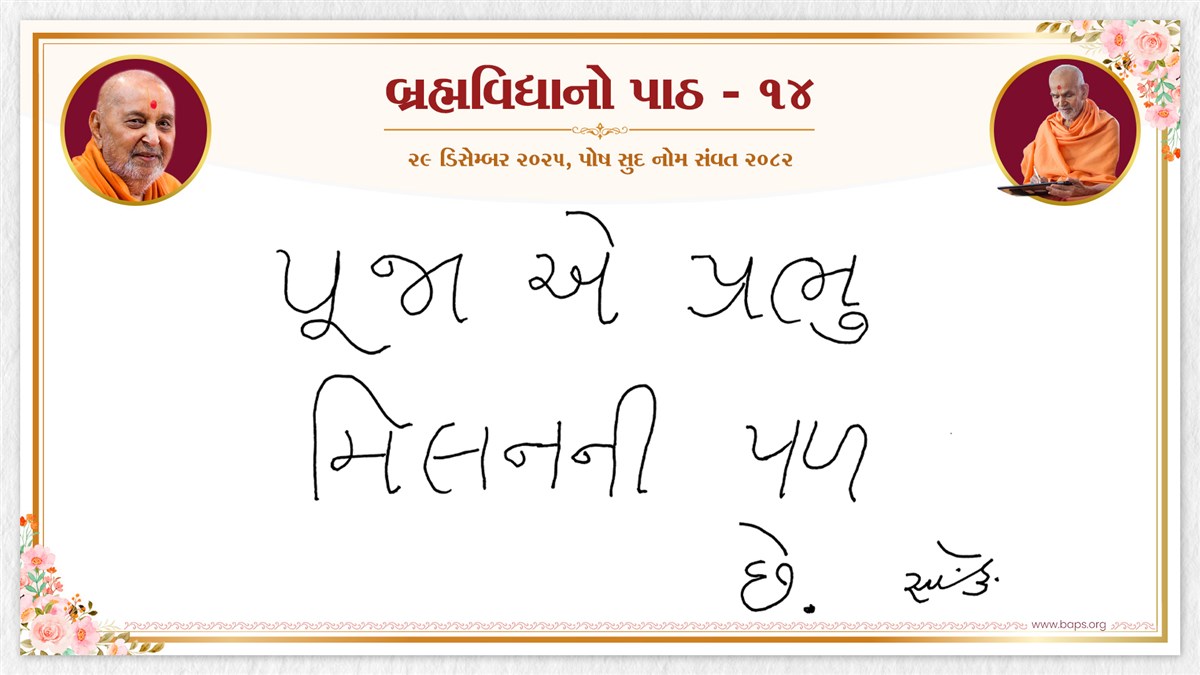 બ્રહ્મવિદ્યાનો પાઠ - ૧૪
૨૯ ડિસેમ્બર ૨૦૨૫, પોષ સુદ નોમ સંવત ૨૦૮૨
પૂજા એ પ્રભુ
મિલનની પળ
છે.
www.baps.org